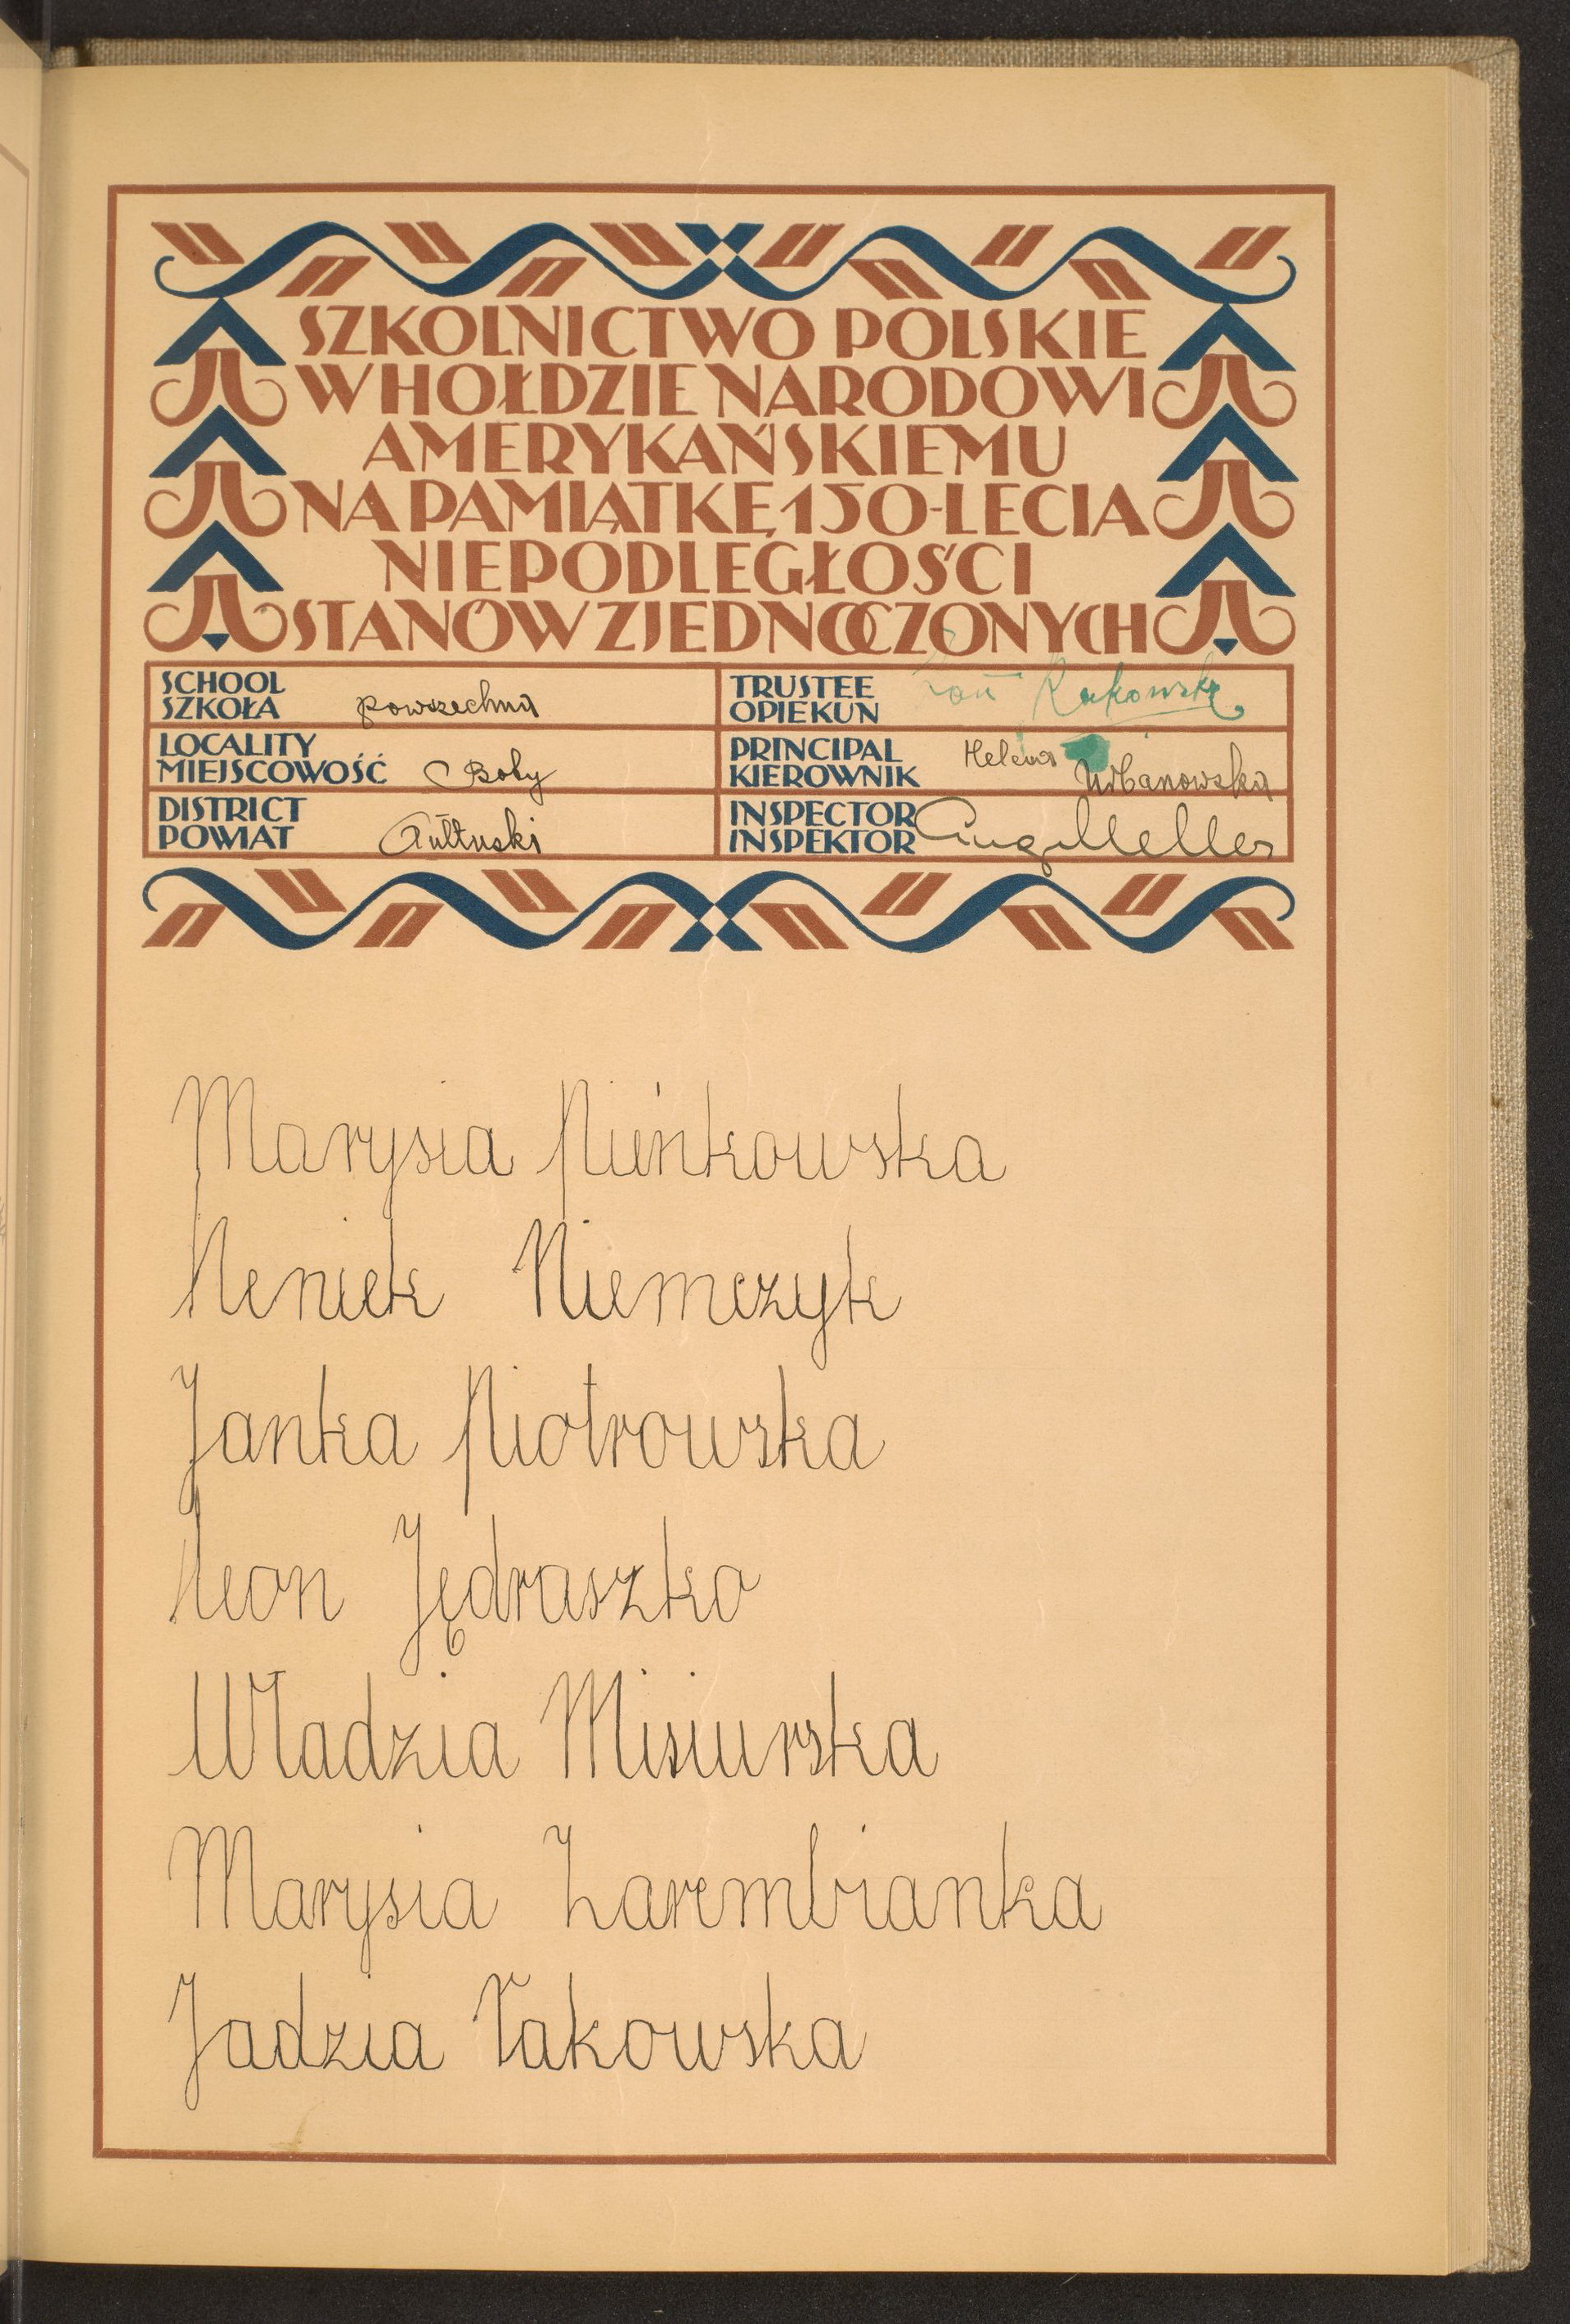 SZKOLNICTWO POLSKIE
W HOŁDZIE NARODOWI
AMERYKAŃSKIEMU
NA PAMIĄTKĘ 150-LECIA
NIEPODLEGŁOŚCI
STANÓW ZJEDNOCZONYCH
SCHOOL
SZKOŁA powszechna
TRUSTEE
OPIEKUN Rakowski
LOCALITY
MIEJSCOWOŚĆ Boby
PRINCIPAL
KIEROWNIK Helena Urbanowska
DISTRICT
POWIAT Pułtuski
INSPECTOR
INSPEKTOR
Marysia Pieńkowska
Heniek Niemczyk
Janka Piotrowska
Leon Jędraszko
Władzia Misiurska
Marysia Zarembianka
Jadzia Żakowska